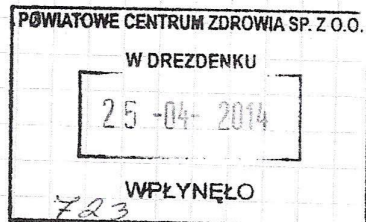 POWIATOWE CENTRUM ZDROWIA SP. Z O.O.
W DREZDENKU
25 -04- 2014
WPŁYNĘŁO
723